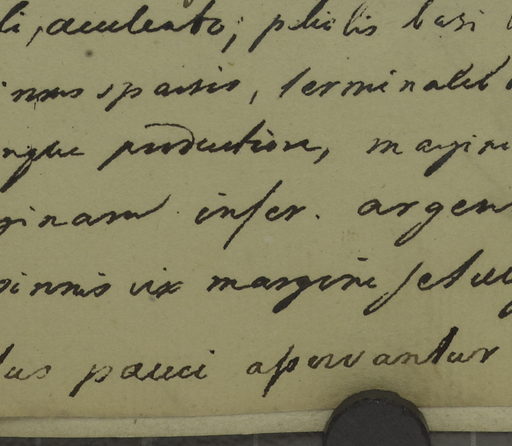 li, aculeato; petiolis basi
innus sparsis, terminales
ngue productiore, margine
ginam infer. argen
pinnis vix margine setul
lus pauci aservantur